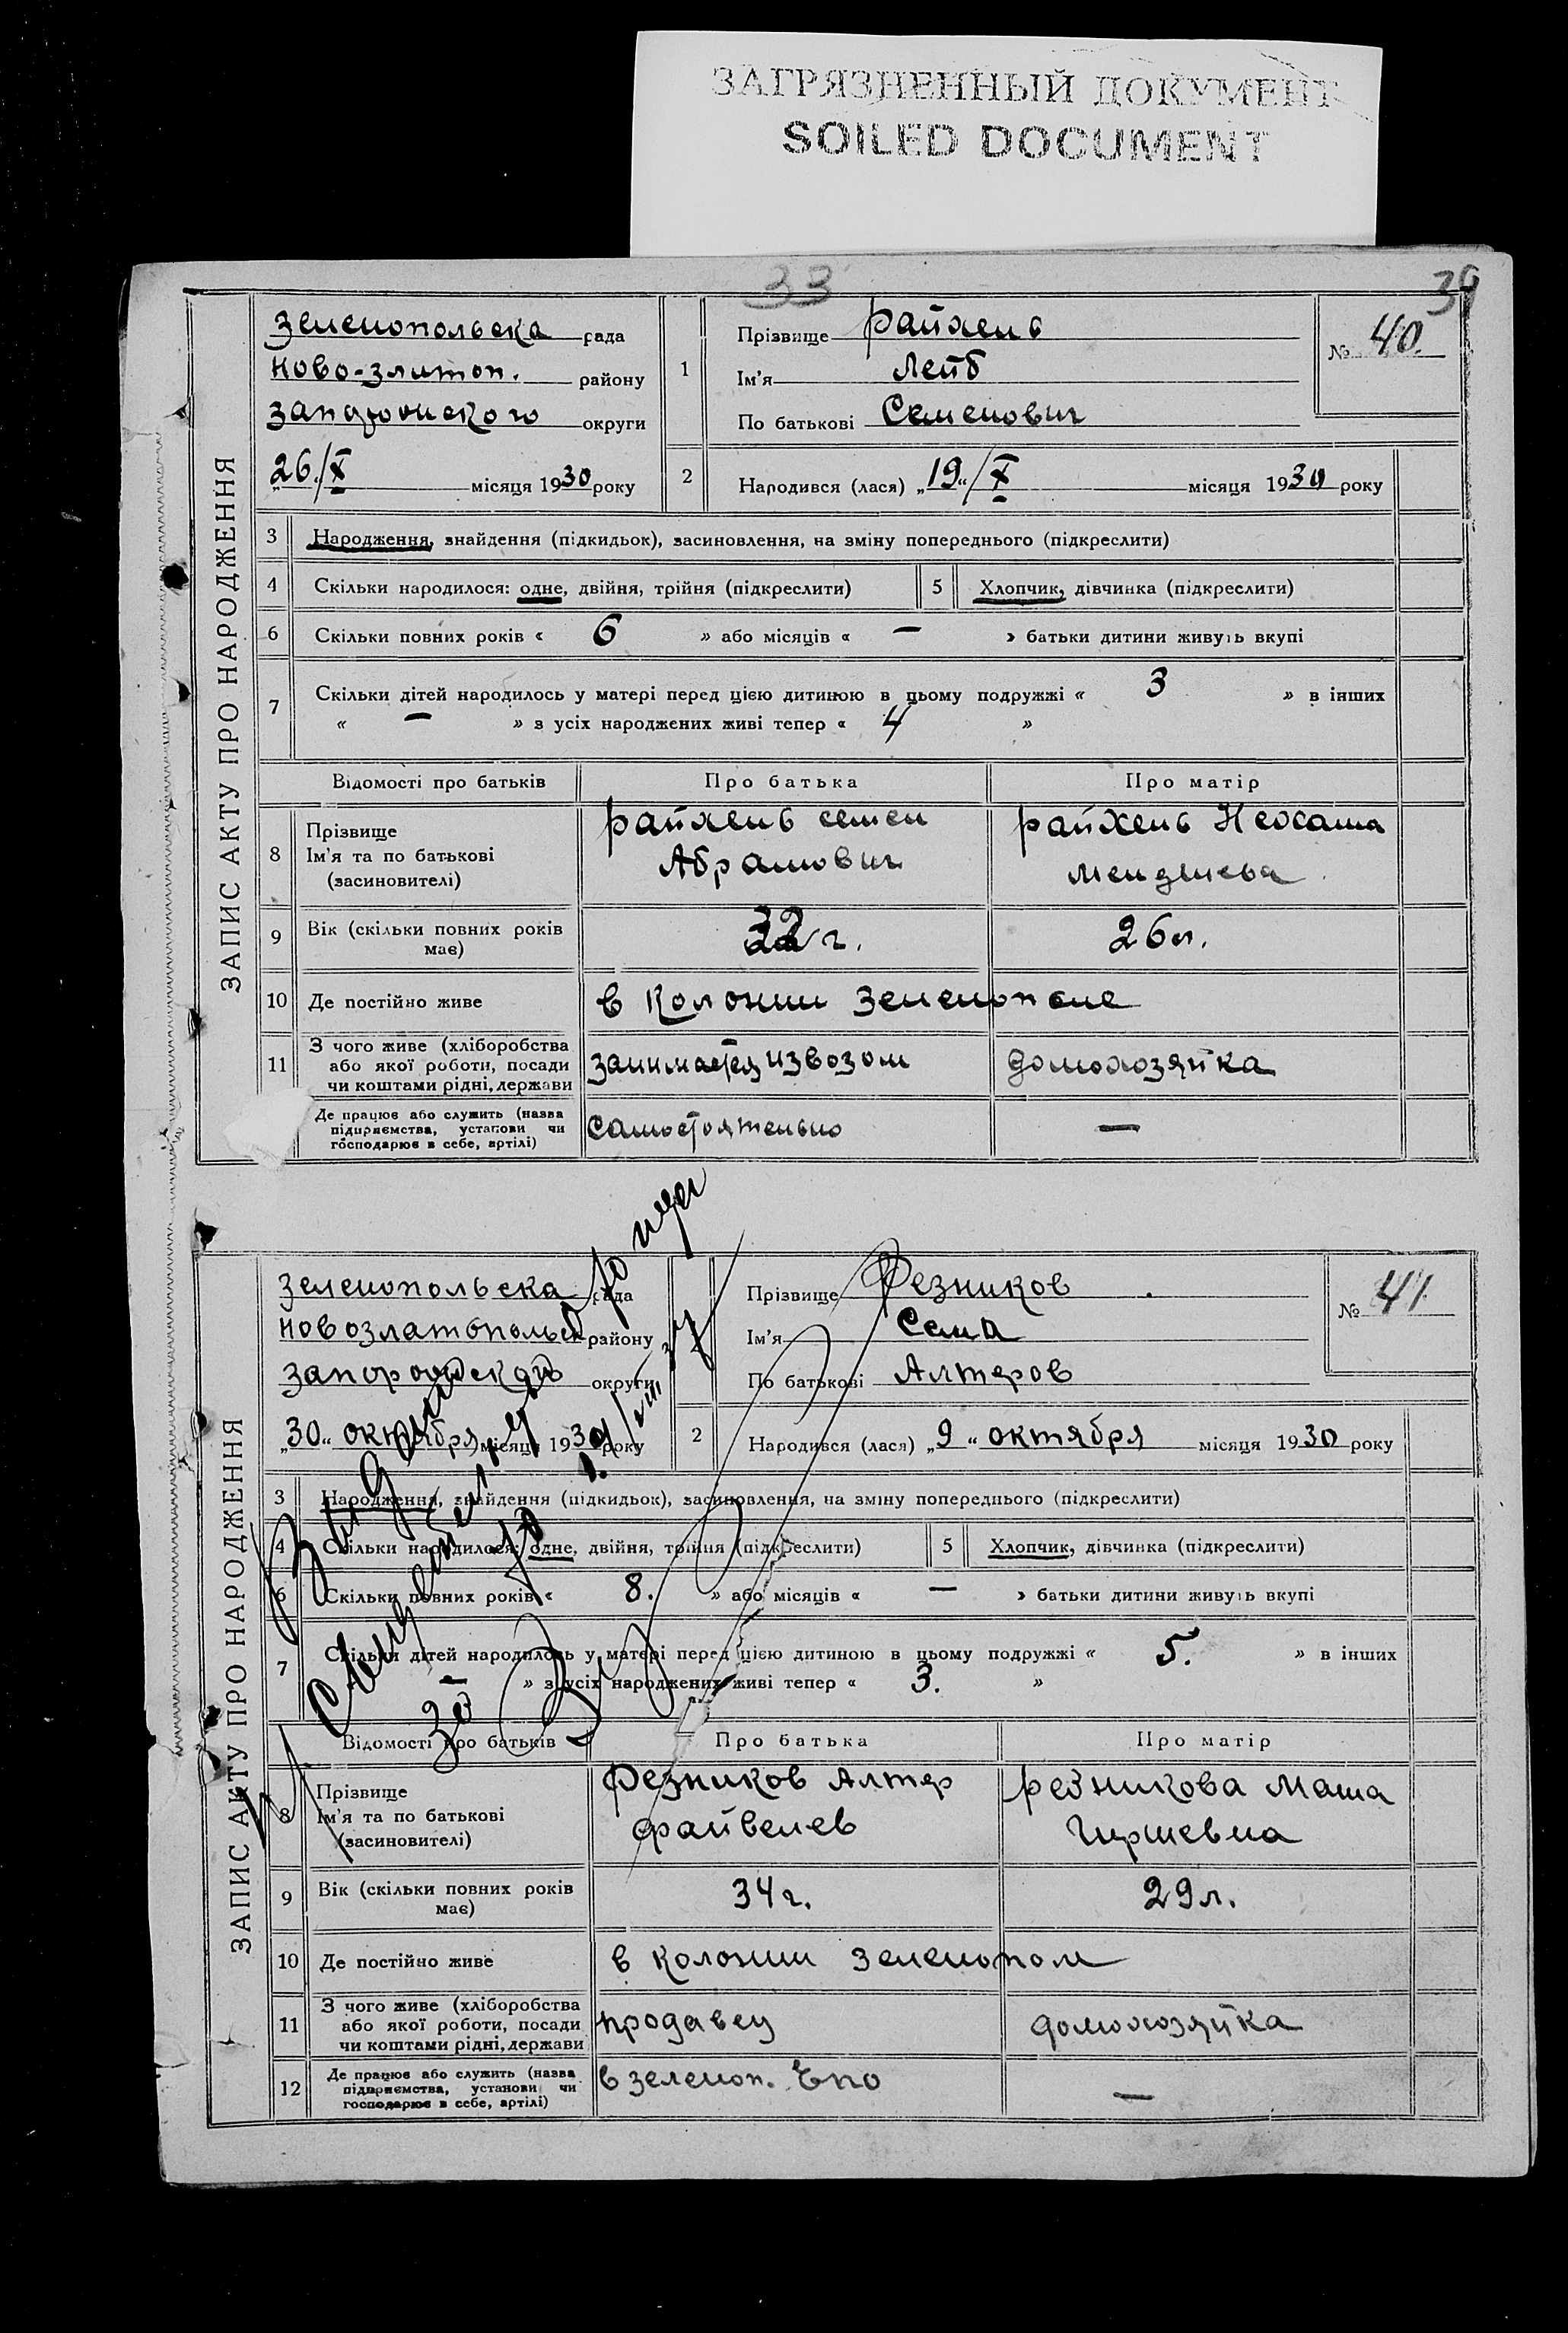 ЗАГРЯЗНЕННЫЙ ДОКУМЕНТ
SOILED DOCUMENT
33
39
ЗАПИС АКТУ ПРО НАРОДЖЕННЯ
Зеленопольска рада
Ново-златоп. району
округи
26/X місяця 1930 року
1 Прізвище Райхень
Ім'я Лейб
По батькові Семенович
№ 40.
2 Народився (лася) „19“/X місяця 1930 року
3 Народження, знайдення (підкидьок), засиновлення, на зміну попереднього (підкреслити)
4 Скільки народилося: одне, двійня, трійня (підкреслити) 5 Хлопчик, дівчинка (підкреслити)
6 Скільки повних років « 6 » або місяців « — » батьки дитини живуть вкупі
7 Скільки дітей народилось у матері перед цією дитиною в цьому подружжі « 3 » в інших
« — » з усіх народжених живі тепер « 4 »
Відомості про батьків Про батька Про матір
8 Прізвище
Ім'я та по батькові
(засиновителі)
Райхень Семен
Абрамович
Райхень Нехама
9 Вік (скільки повних років
має)
32 г.
26 л.
10 Де постійно живе в колонии Зеленополе
11 З чого живе (хліборобства
або якої роботи, посади
чи коштами рідні, держави
занимается извозом
домохозяйка
Де працює або служить (назва
підприємства, установи чи
господарює в себе, артілі)
самостоятельно
—
ЗАПИС АКТУ ПРО НАРОДЖЕННЯ
Зеленопольска рада
Новозлатопольск району
округи
„30“ октября місяця 1930 року
Прізвище Резников
Ім'я Сема
По батькові Алтеров
№ 41
2 Народився (лася) „9“ октября місяця 1930 року
3 Народження, знайдення (підкидьок), засиновлення, на зміну попереднього (підкреслити)
4 Скільки народилося: одне, двійня, трійня (підкреслити) 5 Хлопчик, дівчинка (підкреслити)
6 Скільки повних років « 8. » або місяців « — » батьки дитини живуть вкупі
7 Скільки дітей народилось у матері перед цією дитиною в цьому подружжі « 5. » в інших
— » з усіх народжених живі тепер « 3. »
Відомості про батьків Про батька Про матір
8 Прізвище
Ім'я та по батькові
(засиновителі)
Резников Алтер
Файвелев
Резникова Маша
Гиршевна
9 Вік (скільки повних років
має)
34 г.
29 л.
10 Де постійно живе в колонии Зеленопол
11 З чого живе (хліборобства
або якої роботи, посади
чи коштами рідні, держави
продавец
домохозяйка
12 Де працює або служить (назва
підприємства, установи чи
господарює в себе, артілі)
в зеленоп. Епо
—